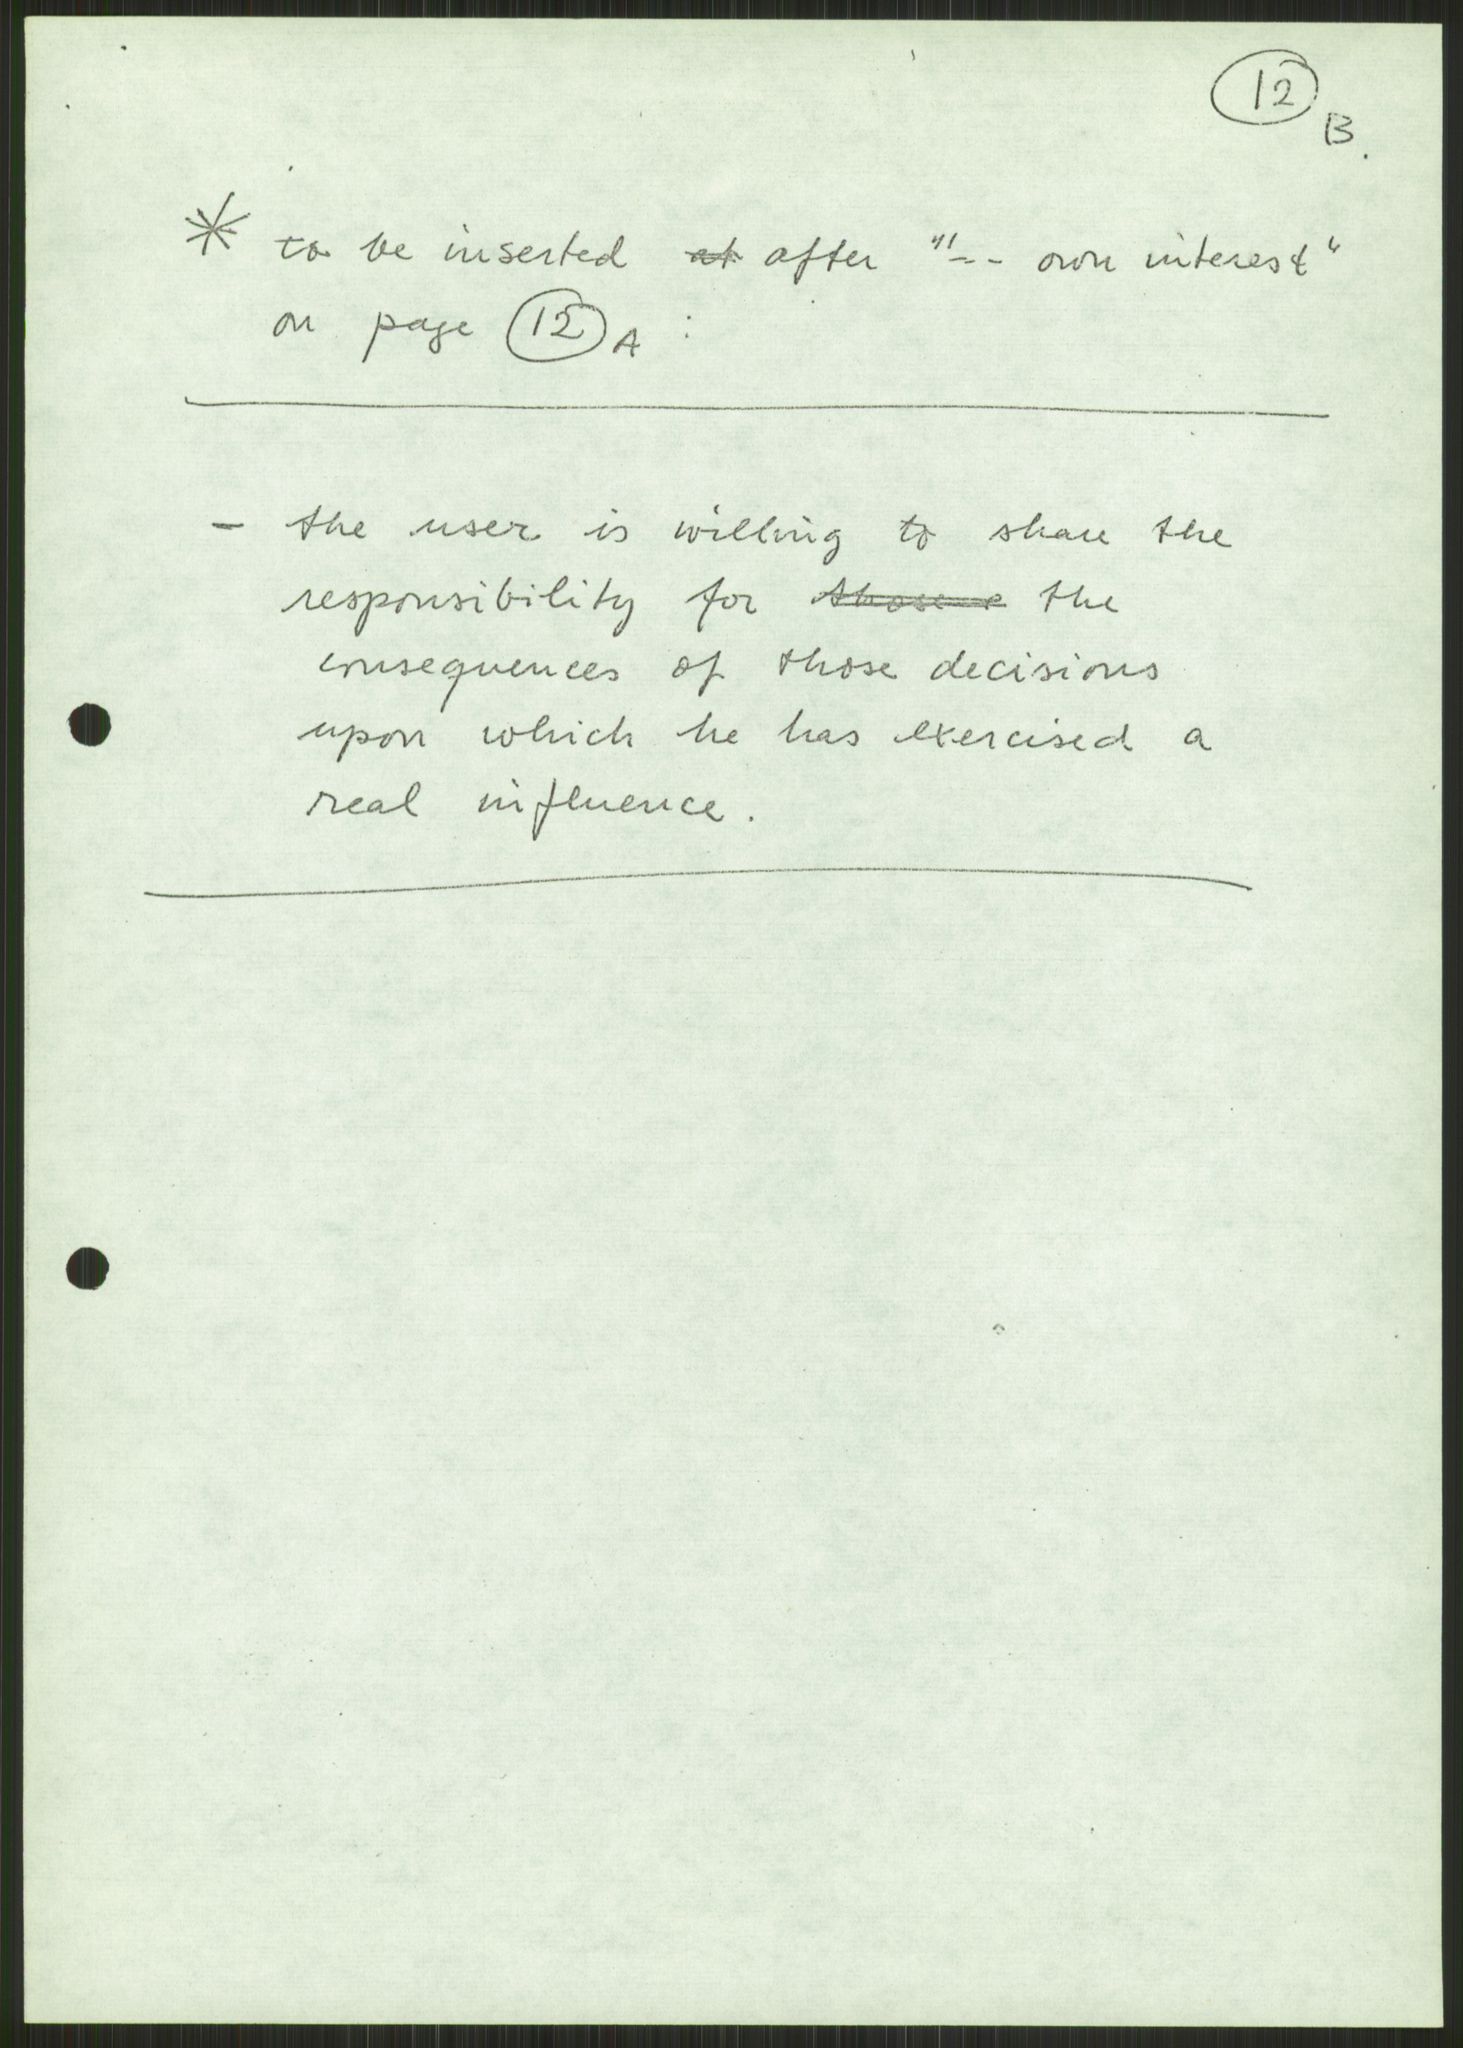 12 B.
* to be inserted at after "-- own interest"
on page 12 A :
- the user is willing to share the
responsibility for those the
consequences of those decisions
upon which he has exercised a
real influence.